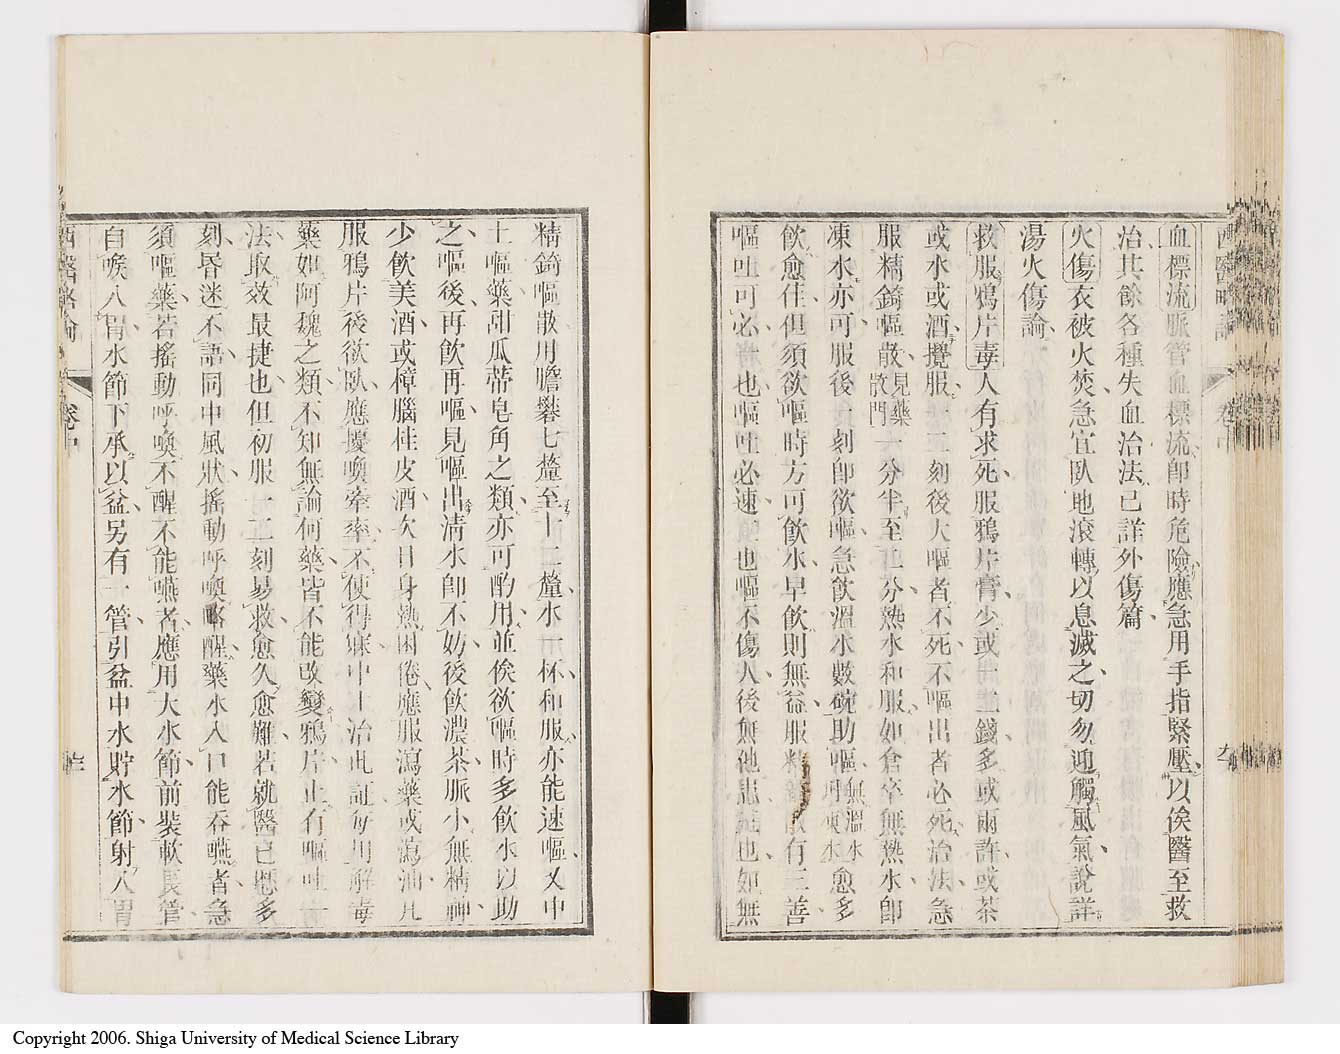 血標流脈管血標流即時危險應急用手指緊壓以俟醫至救
治其餘各種失血治法已詳外傷篇
火傷衣被火焚急宜臥地滾轉以息滅之切勿迎觸風氣說詳
湯火傷論
救服鴉片毒人有求死服鴉片膏少或一二錢多或兩許或茶
或水或酒攪服一二刻後大嘔者不死不嘔出者必死治法急
服精錡嘔散見藥散門一分半至二分熱水和服如倉卒無熱水即
凍水亦可服後一刻即欲嘔急飲溫水數碗助嘔無溫水用凍水愈多
飲愈佳但須欲嘔時方可飲水早飲則無益服精錡嘔散有三善
嘔吐可必一也嘔吐必速二也嘔不傷人後無他患三也如無
精錡嘔散用膽礬七釐至十二釐水一杯和服亦能速嘔又中
土嘔藥甜瓜蒂皂角之類亦可酌用並俟欲嘔時多飲水以助
之嘔後再飲再嘔見嘔出清水即不妨後飲濃茶脈小無精神
少飲美酒或樟腦桂皮酒次日身熱困倦應服瀉藥或瀉油凡
服鴉片後欲臥應擾喚牽率不使得寐中土治此証每用解毒
藥如阿魏之類不知無論何藥皆不能改變鴉片止有嘔吐一
法取效最捷也但初服一二刻易救愈久愈難若就醫已遲多
刻昏迷不語同中風狀搖動呼喚略醒藥水入口能吞嚥者急
須嘔藥若搖動呼喚不醒不能嚥者應用大水節前裝軟長管
自喉入胃水節下承以盆另有一管引盆中水貯水節射入胃
西醫略論
卷中
Copyright 2006. Shiga University of Medical Science Library